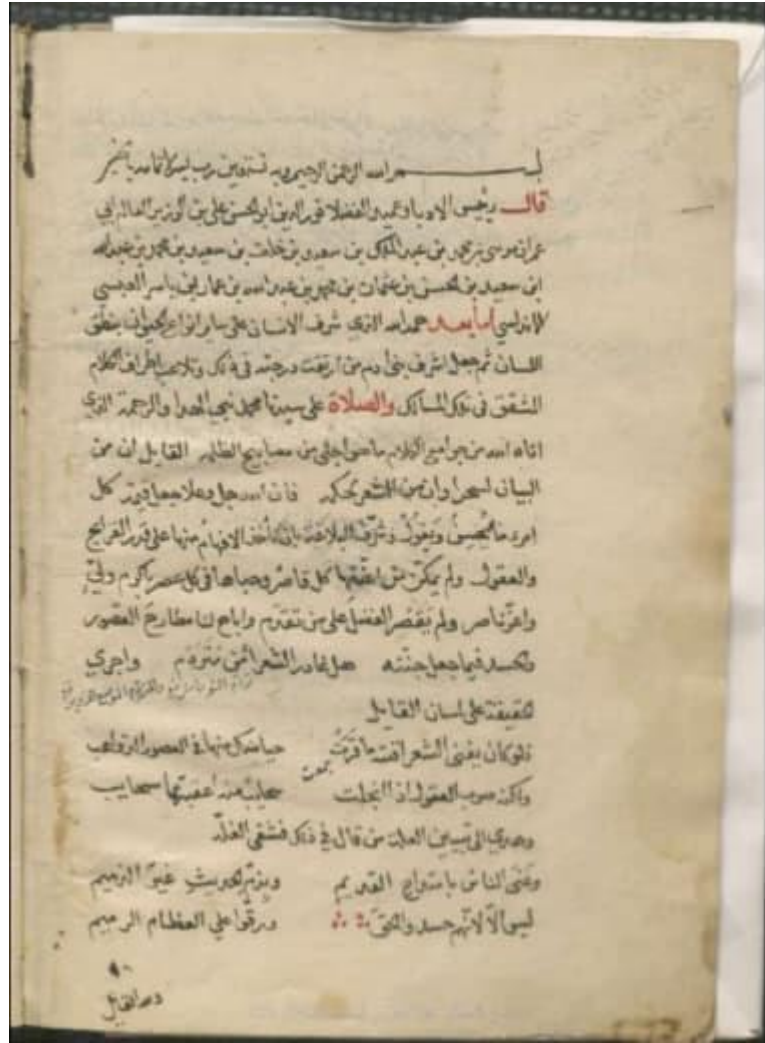 بسم الله الرحمن الرحيم وبه نستعين رب يسر لاتمامه بالخير
قال رئيس الادبا وعميد الفضلا نور الدين ابو الحسن علي بن الوزير العالم ابي
عمران موسى بن محمد بن عبد الملك بن سعيد بن خلف بن سعيد بن محمد بن عبد الله
ابن سعيد بن الحسن بن عثمان بن محمد بن عبد الله بن عمار بن ياسر العبسي
الاندلسي اما بعد حمد الله الذي شرف الانسان على ساير انواع الحيوان بنطق
اللسان ثم جعل اشرف بني ادم من ارتقت درجته في ذلك وتلاعب باطراف الكلام
المشقق في تلك المسالك والصلاة على سيدنا محمد نبي الهدا والرحمة الذي
اتاه الله من جوامع الكلام ما هو اجلى من مصابيح الظلم القايل ان من
البيان لسحرا وان من الشعر لحكم فان الله جل وعلا جعل قيمة كل
امرء ما يحسن ويقول وشرف البلاغة بان تأخذ الافهام منها على قدر القرايح
والعقول ولم يمكن من اغتها كل قاصر وحباها في كل عصر باكرم ولي
واعز ناصر ولم يقصر الفضل على من تقدم واباح لنا مطارح العصور
ولحسد فيما جعل جنته هل غادر الشعرا من متردم واجرى
الحقيقة على لسان القايل
فلو كان يفنى الشعر افنته ما قرت حياضك منها في العصور الذواهب
ولكنه صوب العقول اذا انجلت سحايب منه اعقبتها سحايب
وهدي الى تبيين العلة من قال في ذلك فشفى الغلة
وعنى الناس بامتداح القديم وبذم الحديث غير الذميم
ليس الا لانهم حسدوا الحي ورقوا على العظام الرميم
٩٠
ولله القايل